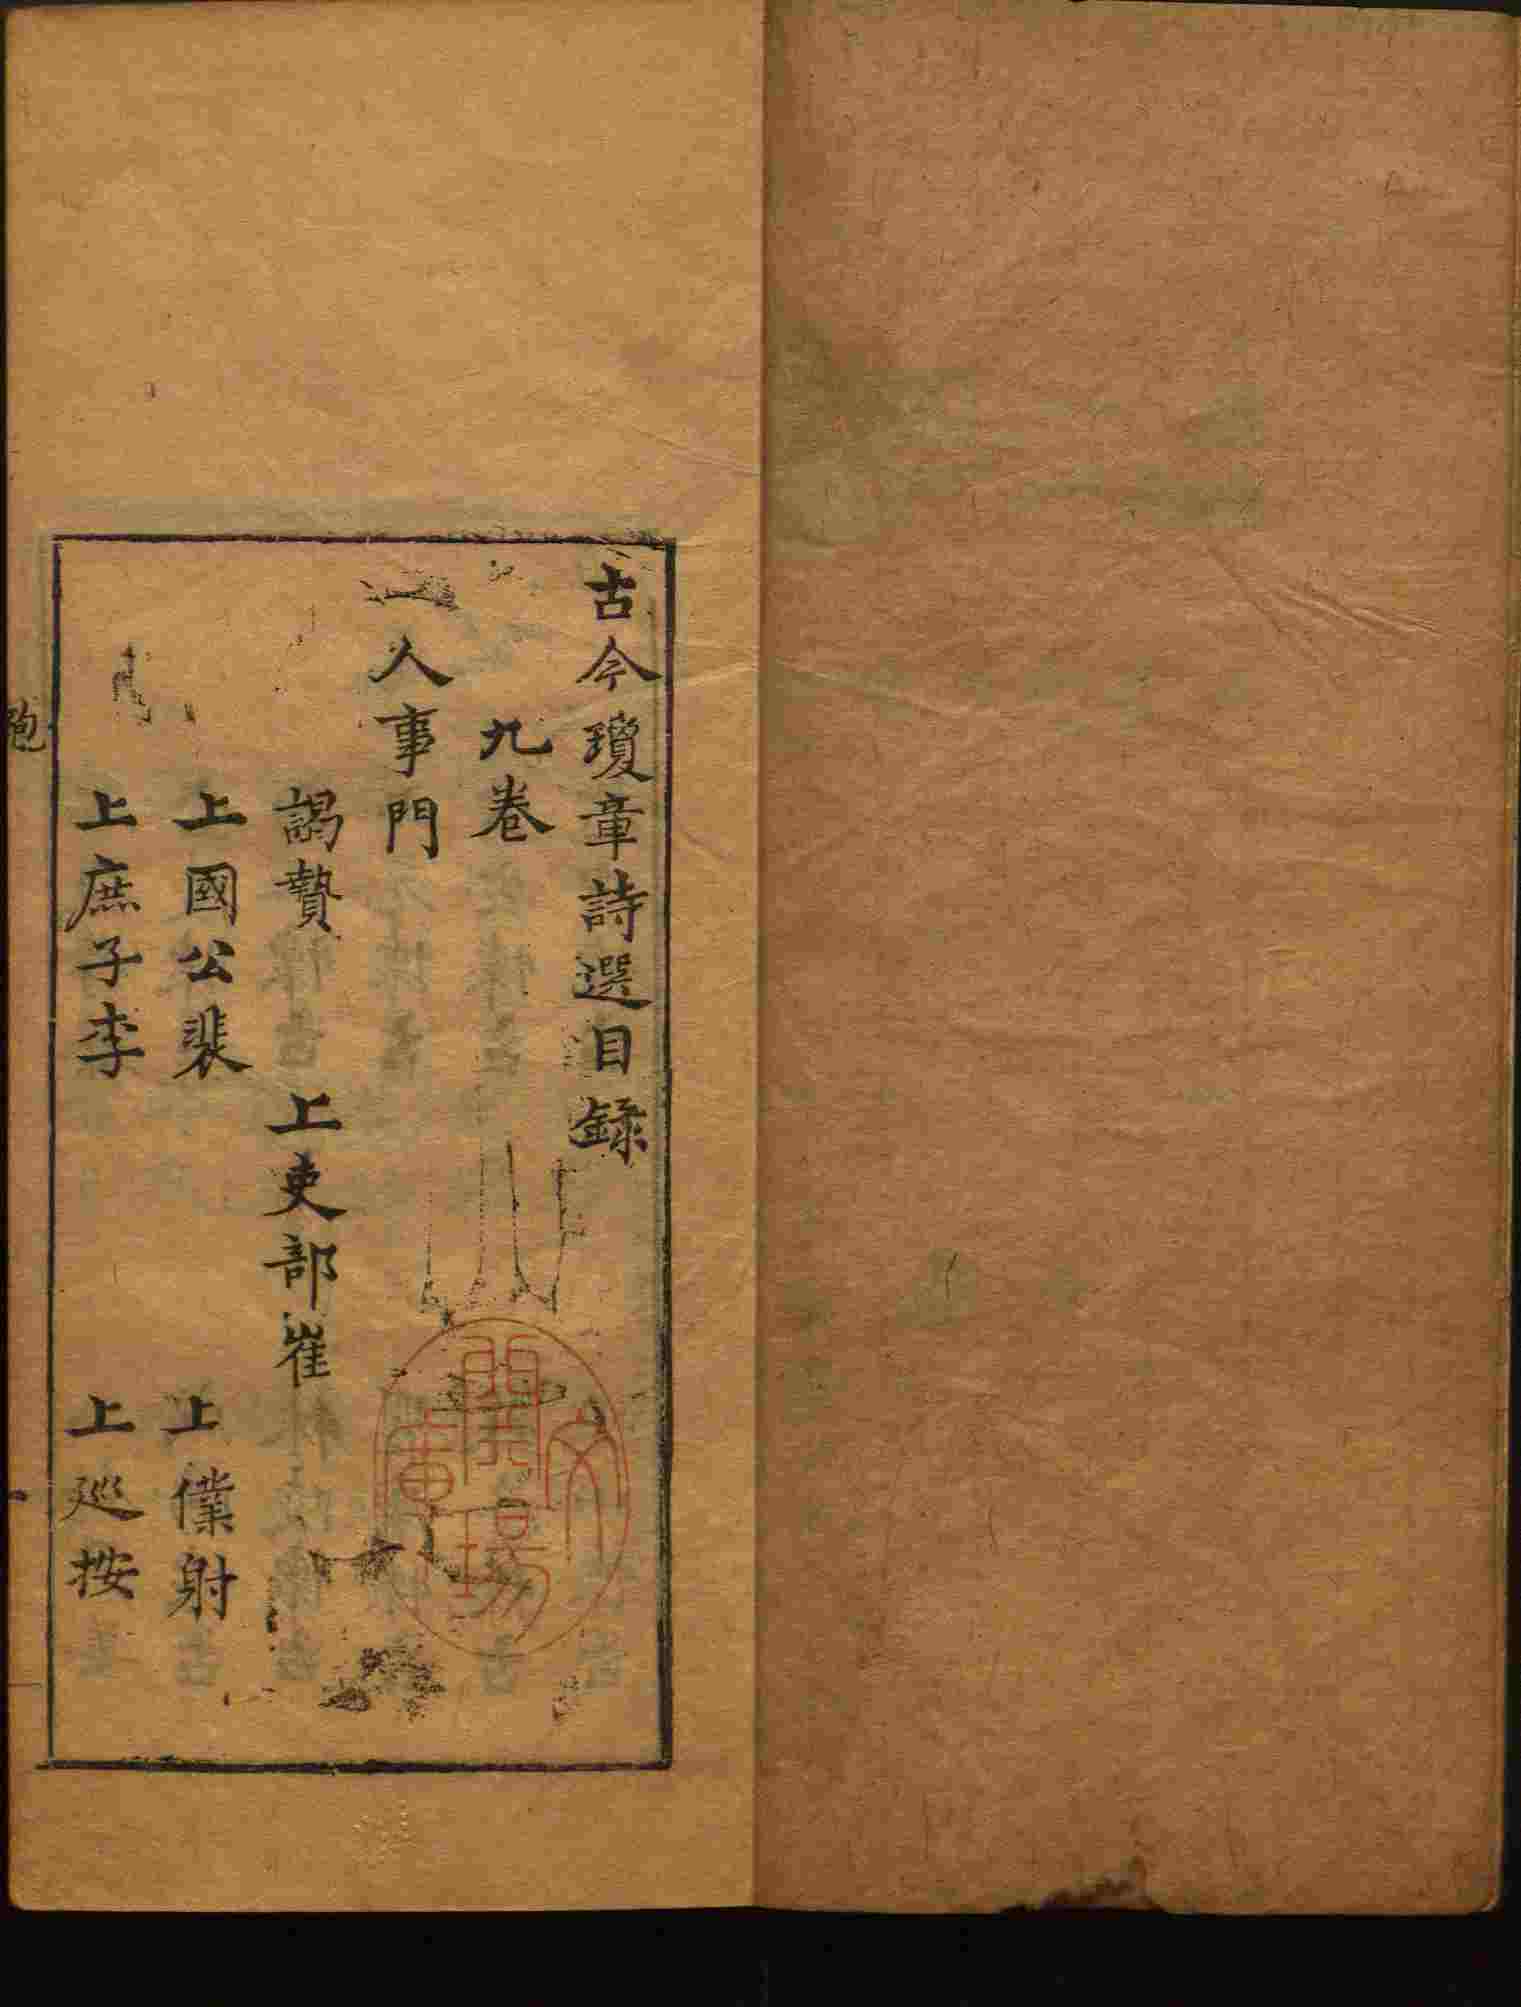 古今瓊章詩選目録
九卷
人事門
謁贄 上吏部崔
上國公裴 上僕射
上庶子李 上巡按